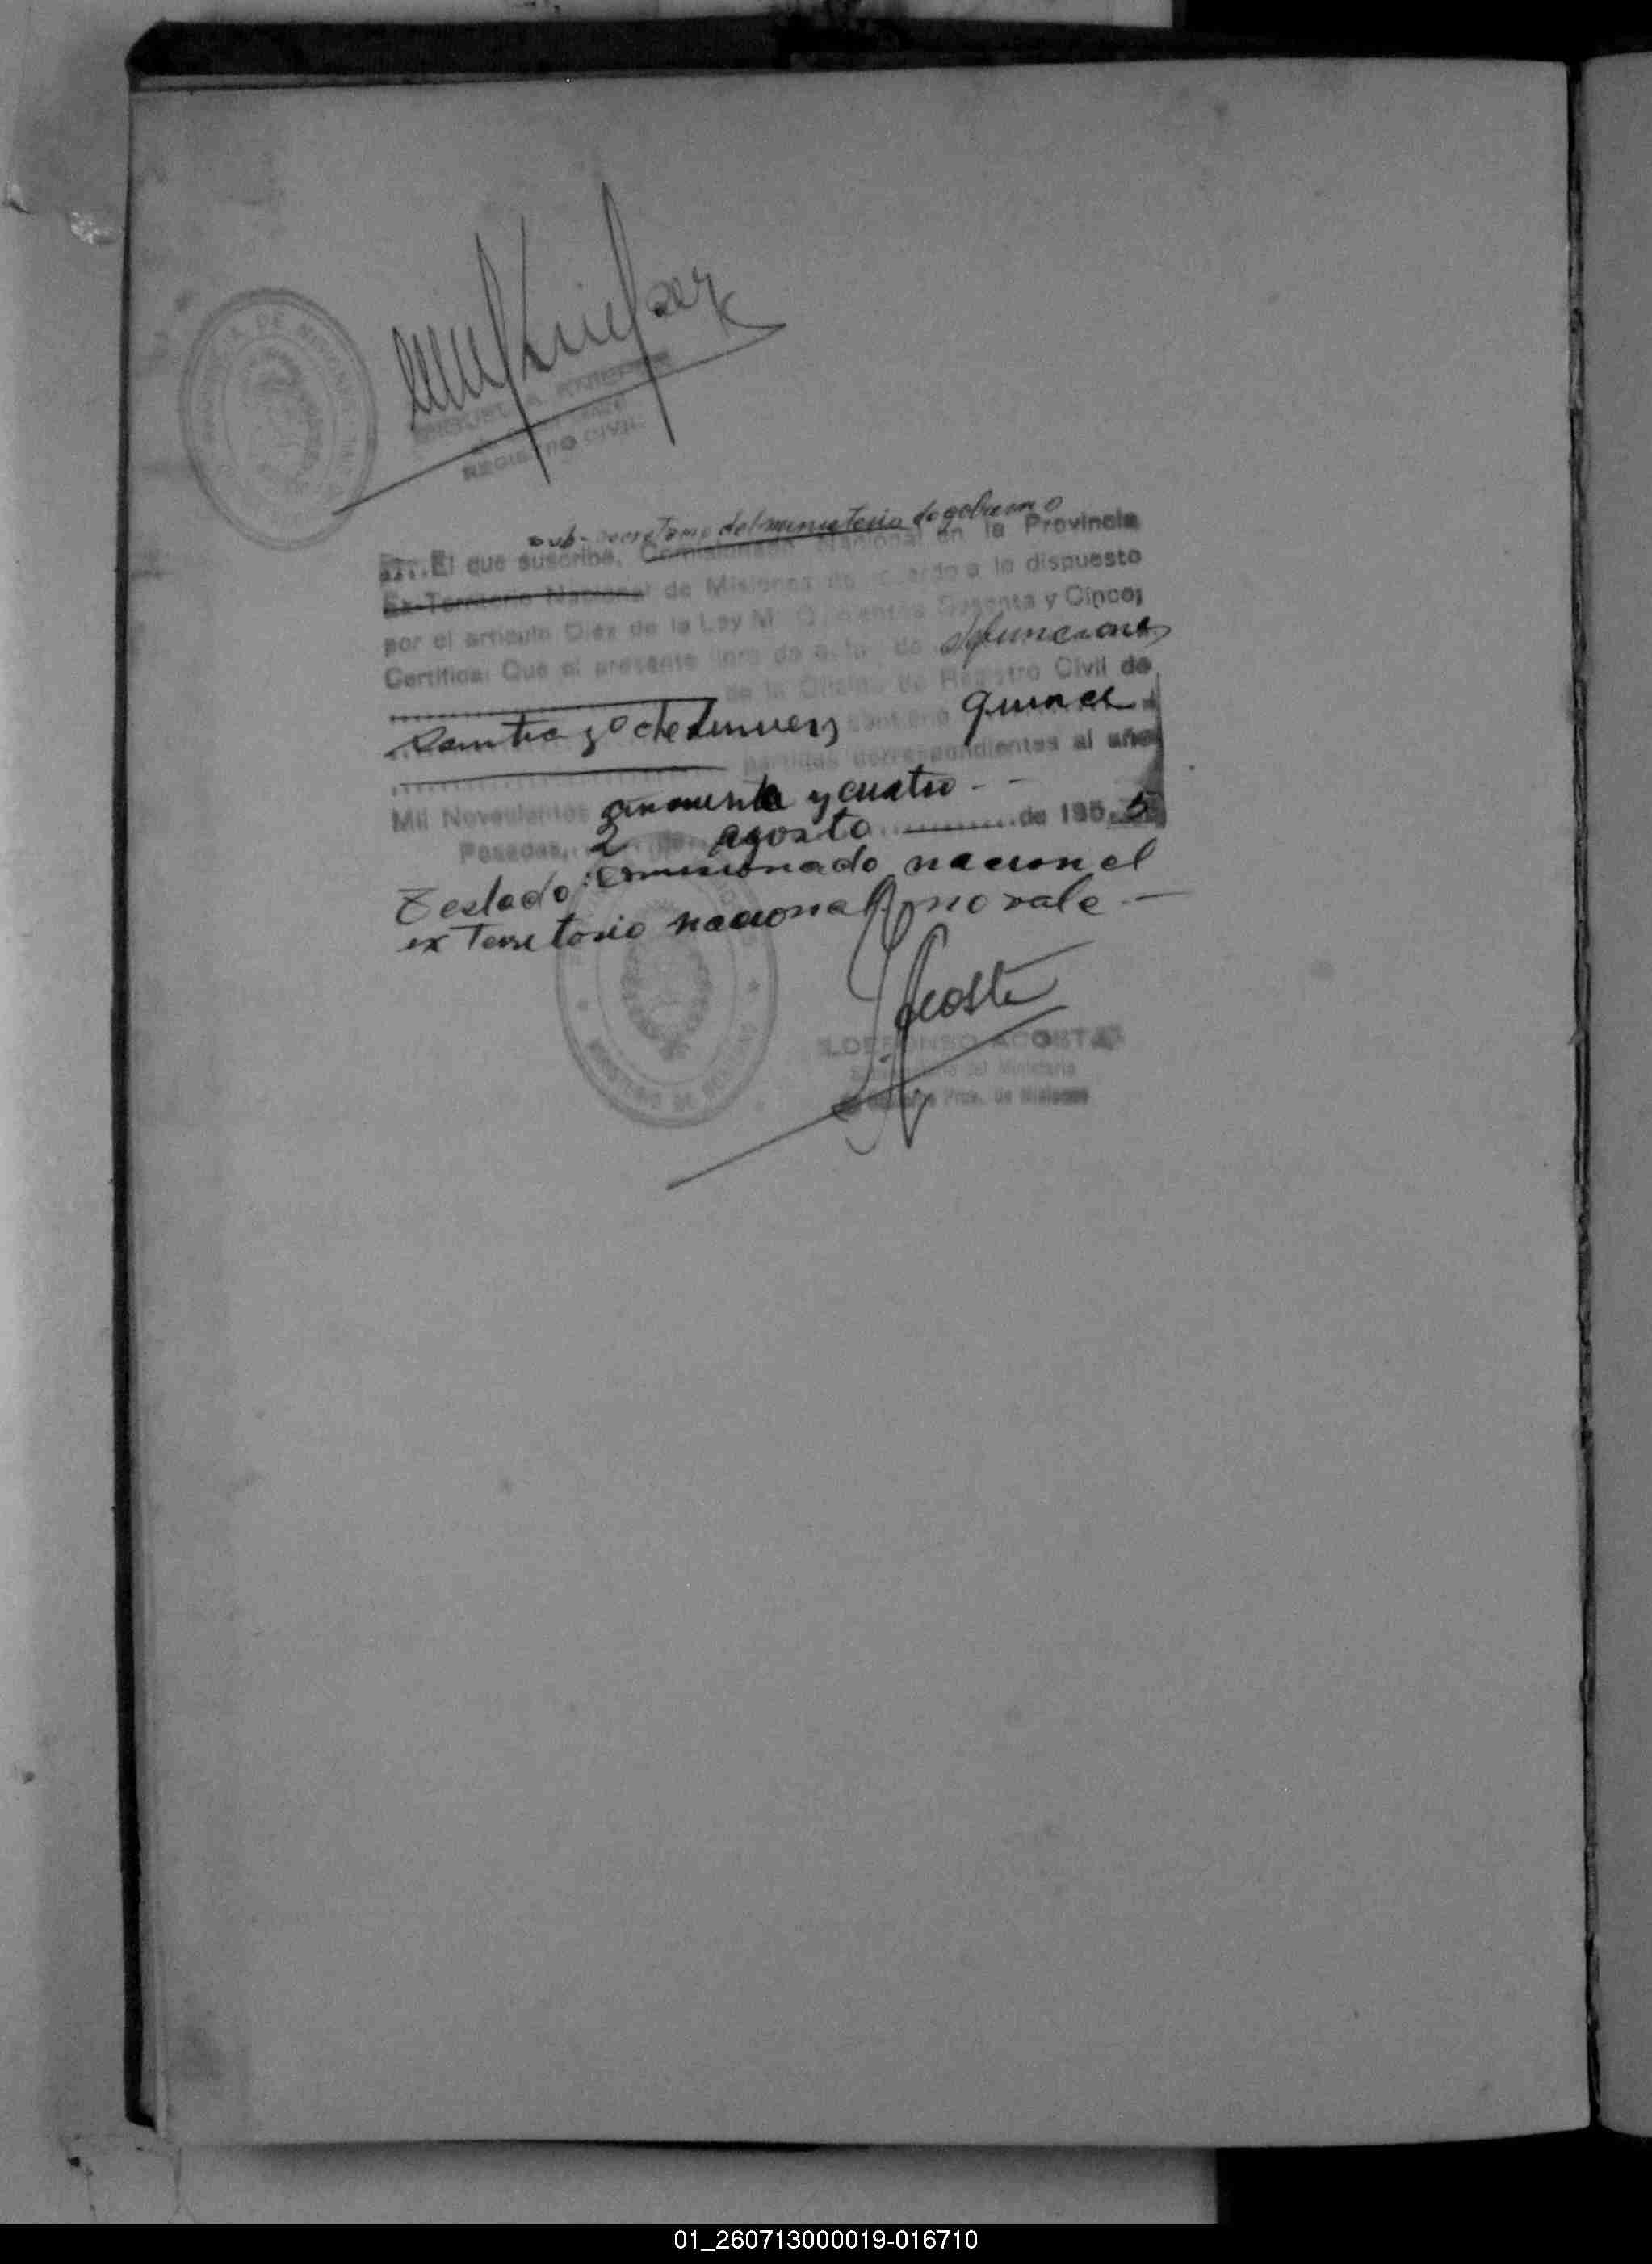 PROVINCIA DE MISIONES
MIGUEL A. KNIEFER
REGISTRO CIVIL
sub-secretario del ministerio de gobierno
El que suscribe, Comisionado Nacional en la Provincia
Ex-Territorio Nacional de Misiones de acuerdo a lo dispuesto
por el articulo Diez de la Ley Mil Quinientos Sesenta y Cinco;
Certifica: Que el presente libro de actas de defunciones
de la Oficina de Registro Civil de
Santiago de Liniers contiene quince
partidas correspondientes al año
Mil Novecientos cincuenta y cuatro - -
Posadas, 2 de agosto de 1955
Testado: Comisionado nacional
ex Territorio nacional, no vale. -
Acosta
ILDEFONSO ACOSTA
Sub-Secretario del Ministerio
de Gobierno Prov. de Misiones
MINISTERIO DE GOBIERNO
01_260713000019-016710